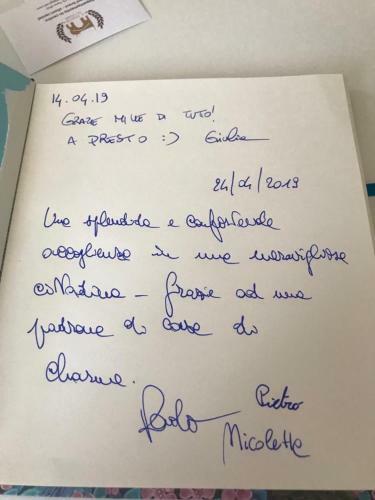 14.04.19
GRAZIE MILLE DI TUTO!
A PRESTO :) Giulia
24/04/2019
Una splendida e confortevole
accoglienza in una meravigliosa
cittadina - Grazie ad una
padrona di casa di
charme.
Paolo Pietro
Nicoletta